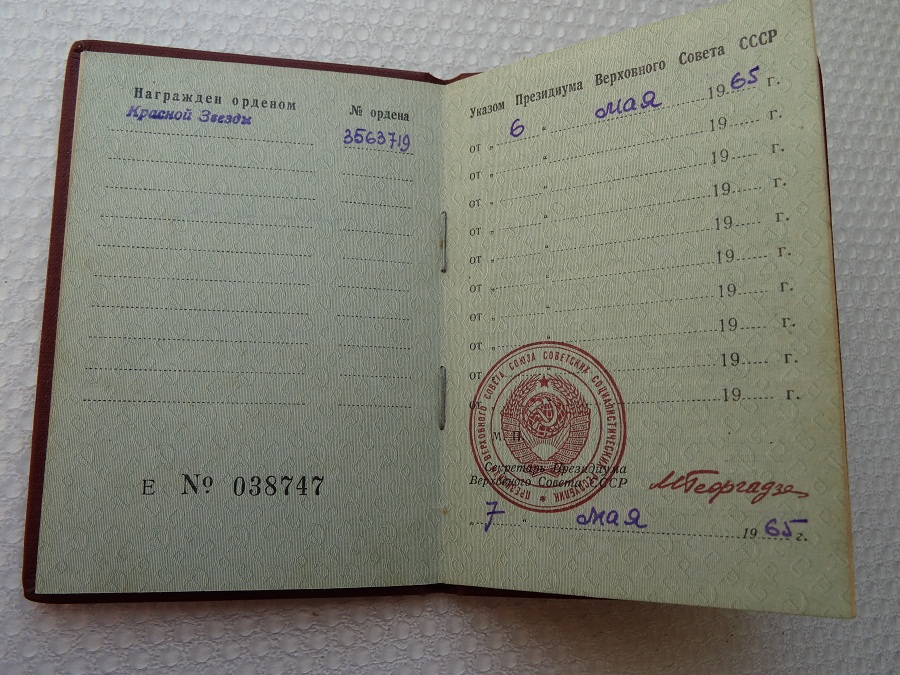 Награжден орденом № ордена
Красной Звезды 3563719
Е № 038747
Указом Президиума Верховного Совета СССР
от „ 6 “ мая 1965 г.
от „ “ 19 г.
от „ “ 19 г.
от „ “ 19 г.
от „ “ 19 г.
от „ “ 19 г.
от „ “ 19 г.
от „ “ 19 г.
от „ “ 19 г.
от „ “ 19 г.
ПРЕЗИДИУМ ВЕРХОВНОГО СОВЕТА СОЮЗА СОВЕТСКИХ СОЦИАЛИСТИЧЕСКИХ РЕСПУБЛИК
М. П.
Секретарь Президиума
Верховного Совета СССР МГеоргадзе
„ 7 “ мая 1965 г.